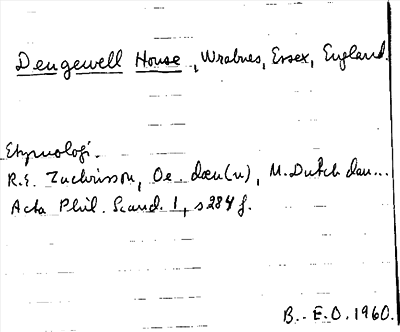 Dengewell House, Wrabnes, Essex, England.
Etymologi.
R.E. Zachrisson, Oe. dæn(n), M. Dutch dan...
Acta Phil. Scand. 1, s 284 f.
B. E.O. 1960.